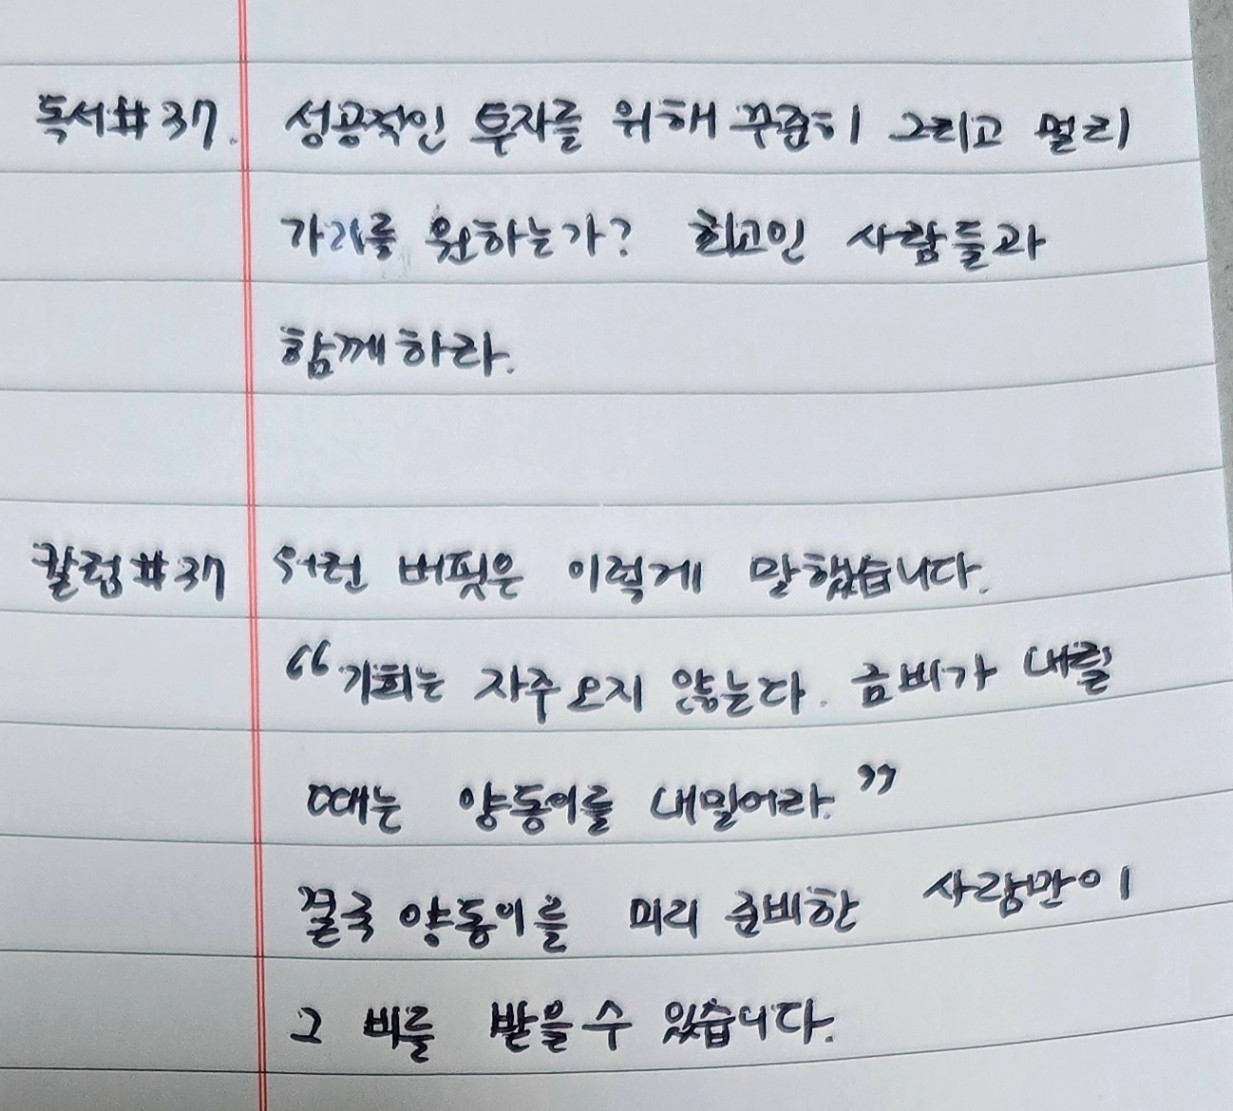 독서#37. 성공적인 투자를 위해 꾸준히 그리고 멀리
가기를 원하는가? 최고인 사람들과
함께하라.
칼럼#37 워런 버핏은 이렇게 말했습니다.
“기회는 자주 오지 않는다. 금비가 내릴
때는 양동이를 내밀어라.”
결국 양동이를 미리 준비한 사람만이
그 비를 받을 수 있습니다.